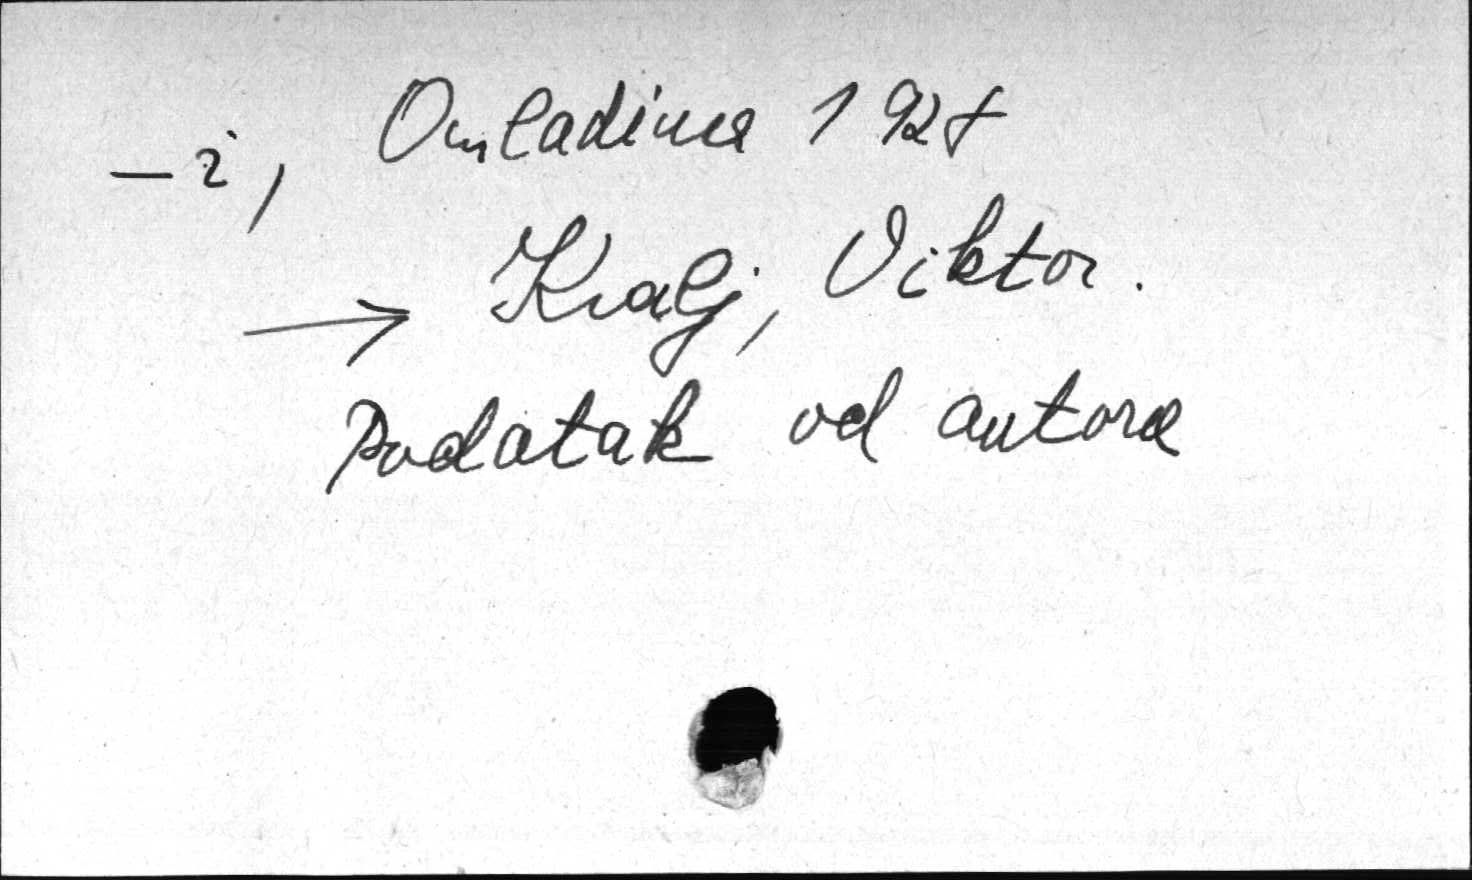 – ž, Omladina 1928
→ Kralj, Viktor.
Podatak od autora